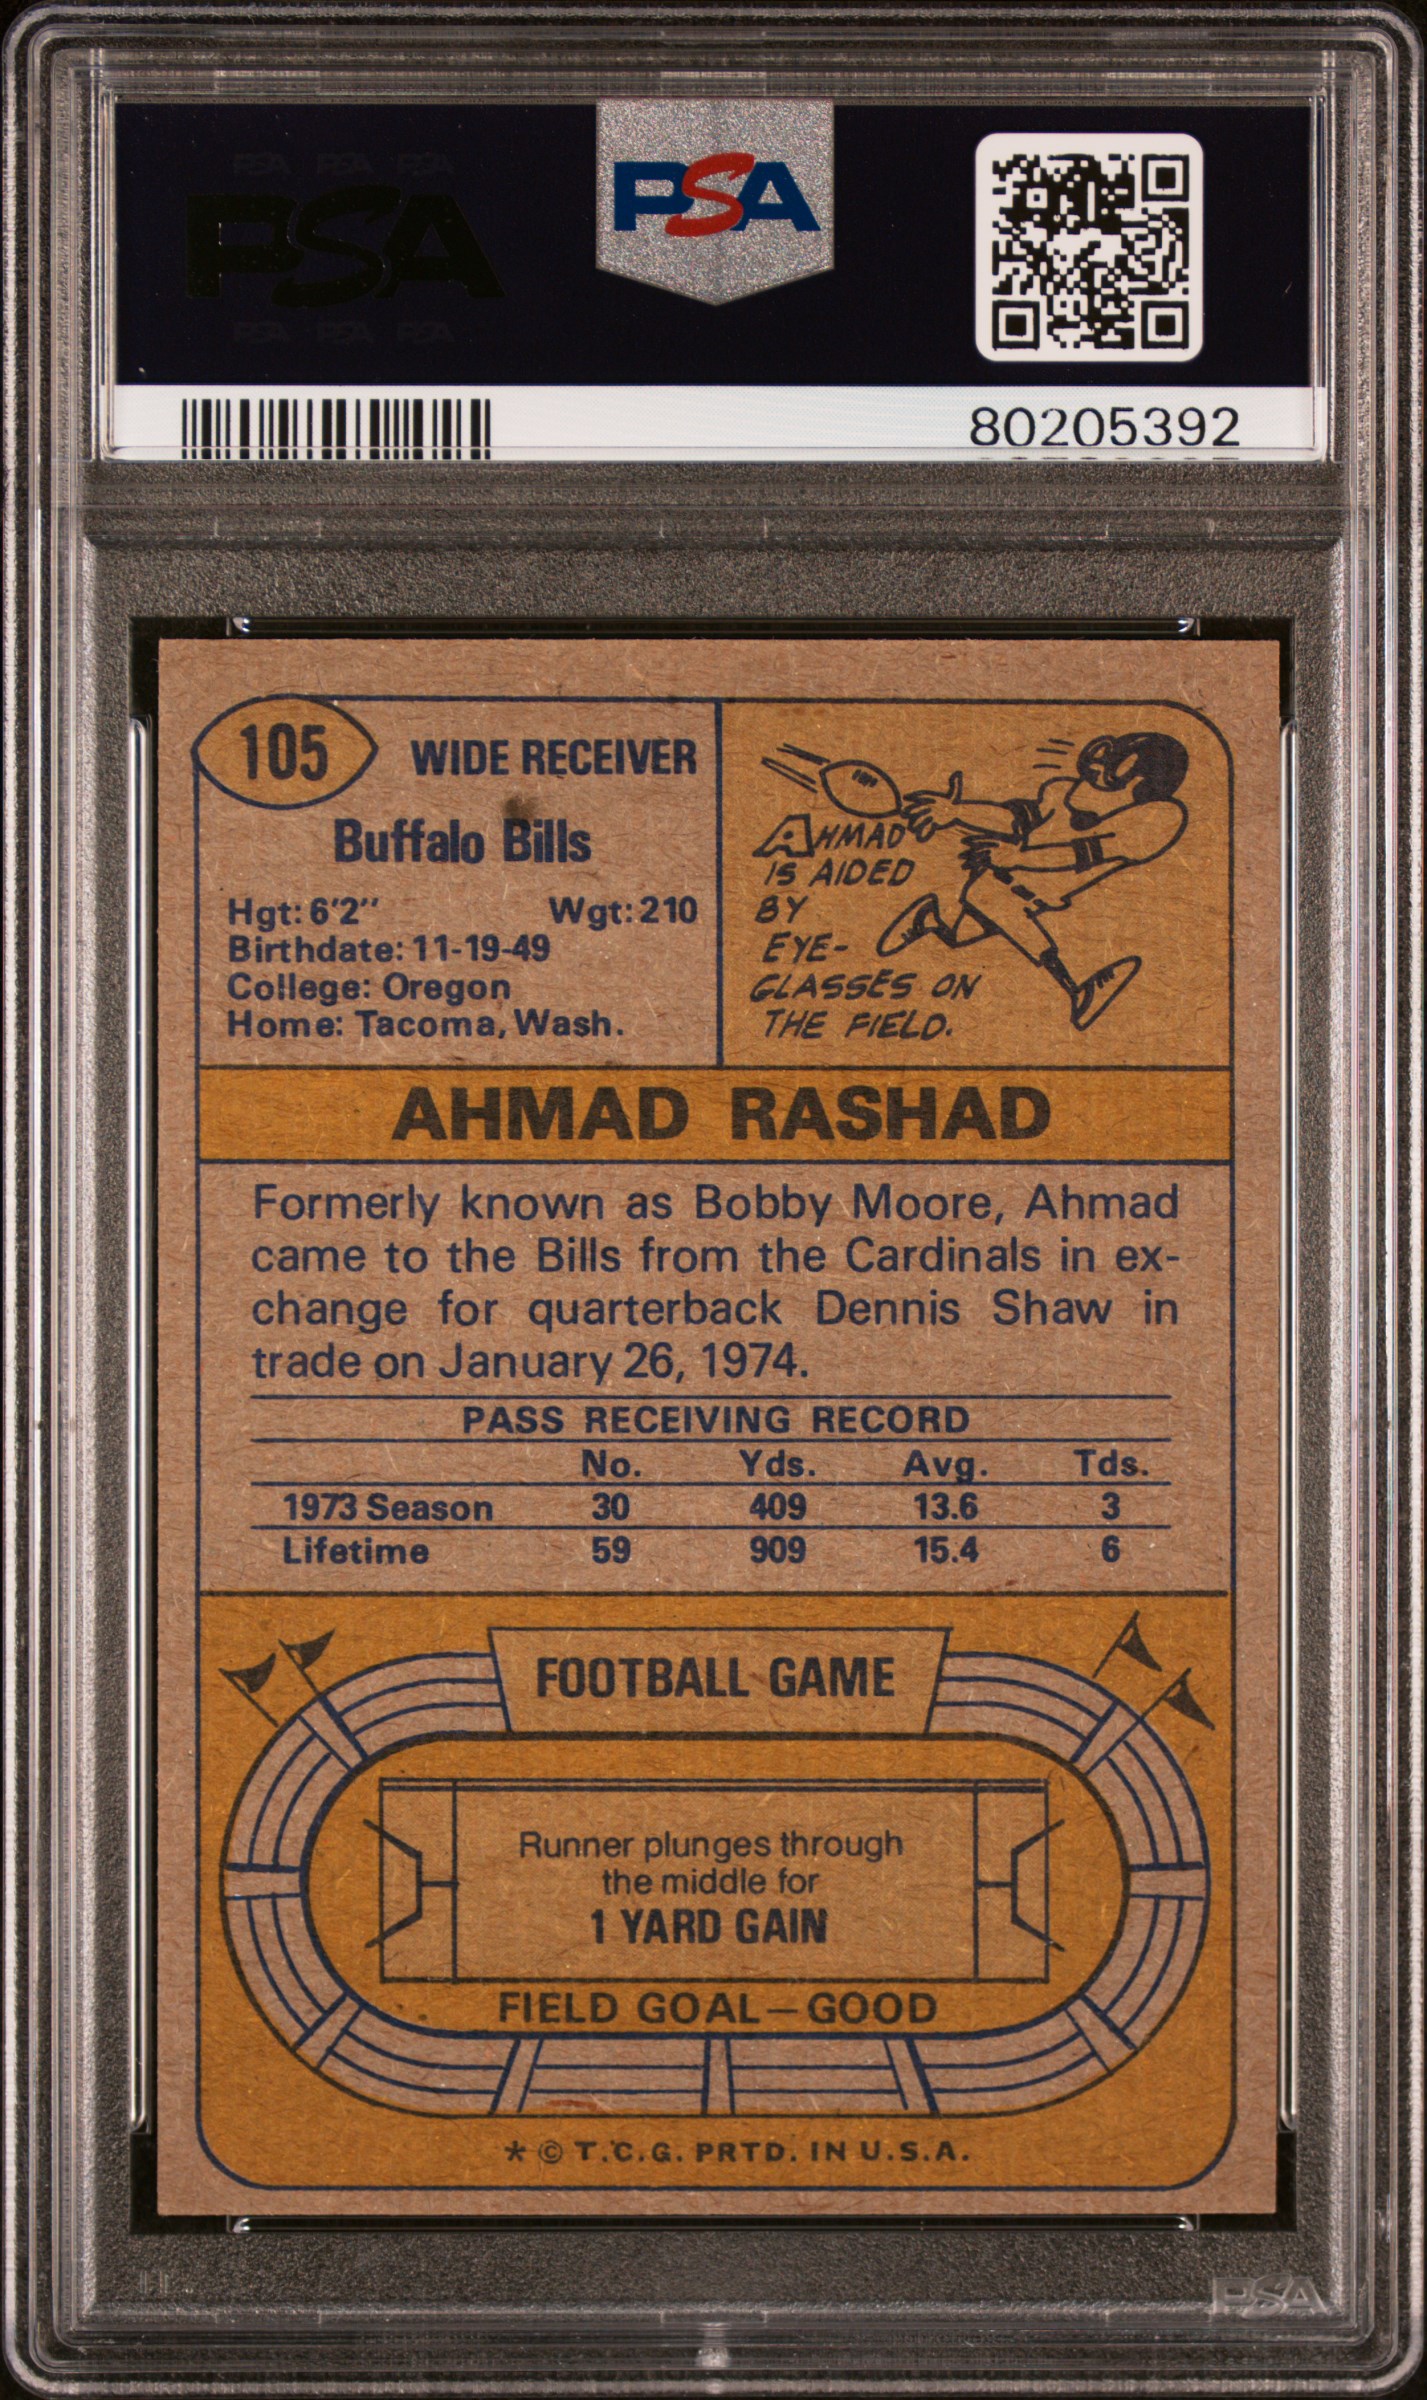 PSA PSA PSA
PSA
PSA PSA PSA
PSA
80205392
105
WIDE RECEIVER
Buffalo Bills
Hgt: 6'2" Wgt: 210
Birthdate: 11-19-49
College: Oregon
Home: Tacoma, Wash.
AHMAD
IS AIDED
BY
EYE-
GLASSES ON
THE FIELD.
AHMAD RASHAD
Formerly known as Bobby Moore, Ahmad
came to the Bills from the Cardinals in ex-
change for quarterback Dennis Shaw in
trade on January 26, 1974.
PASS RECEIVING RECORD
No. Yds. Avg. Tds.
1973 Season 30 409 13.6 3
Lifetime 59 909 15.4 6
FOOTBALL GAME
Runner plunges through
the middle for
1 YARD GAIN
FIELD GOAL—GOOD
* © T.C.G. PRTD. IN U.S.A.
PSA